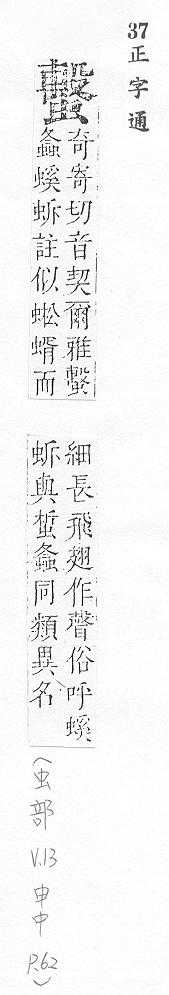 37
正字通
蟿
奇寄切音契爾雅蟿
螽螇蚸註似蜙蝑而
細長飛翅作聲俗呼螇
蚸與蜤螽同類異名
(虫部 V.13 申中 P.62)